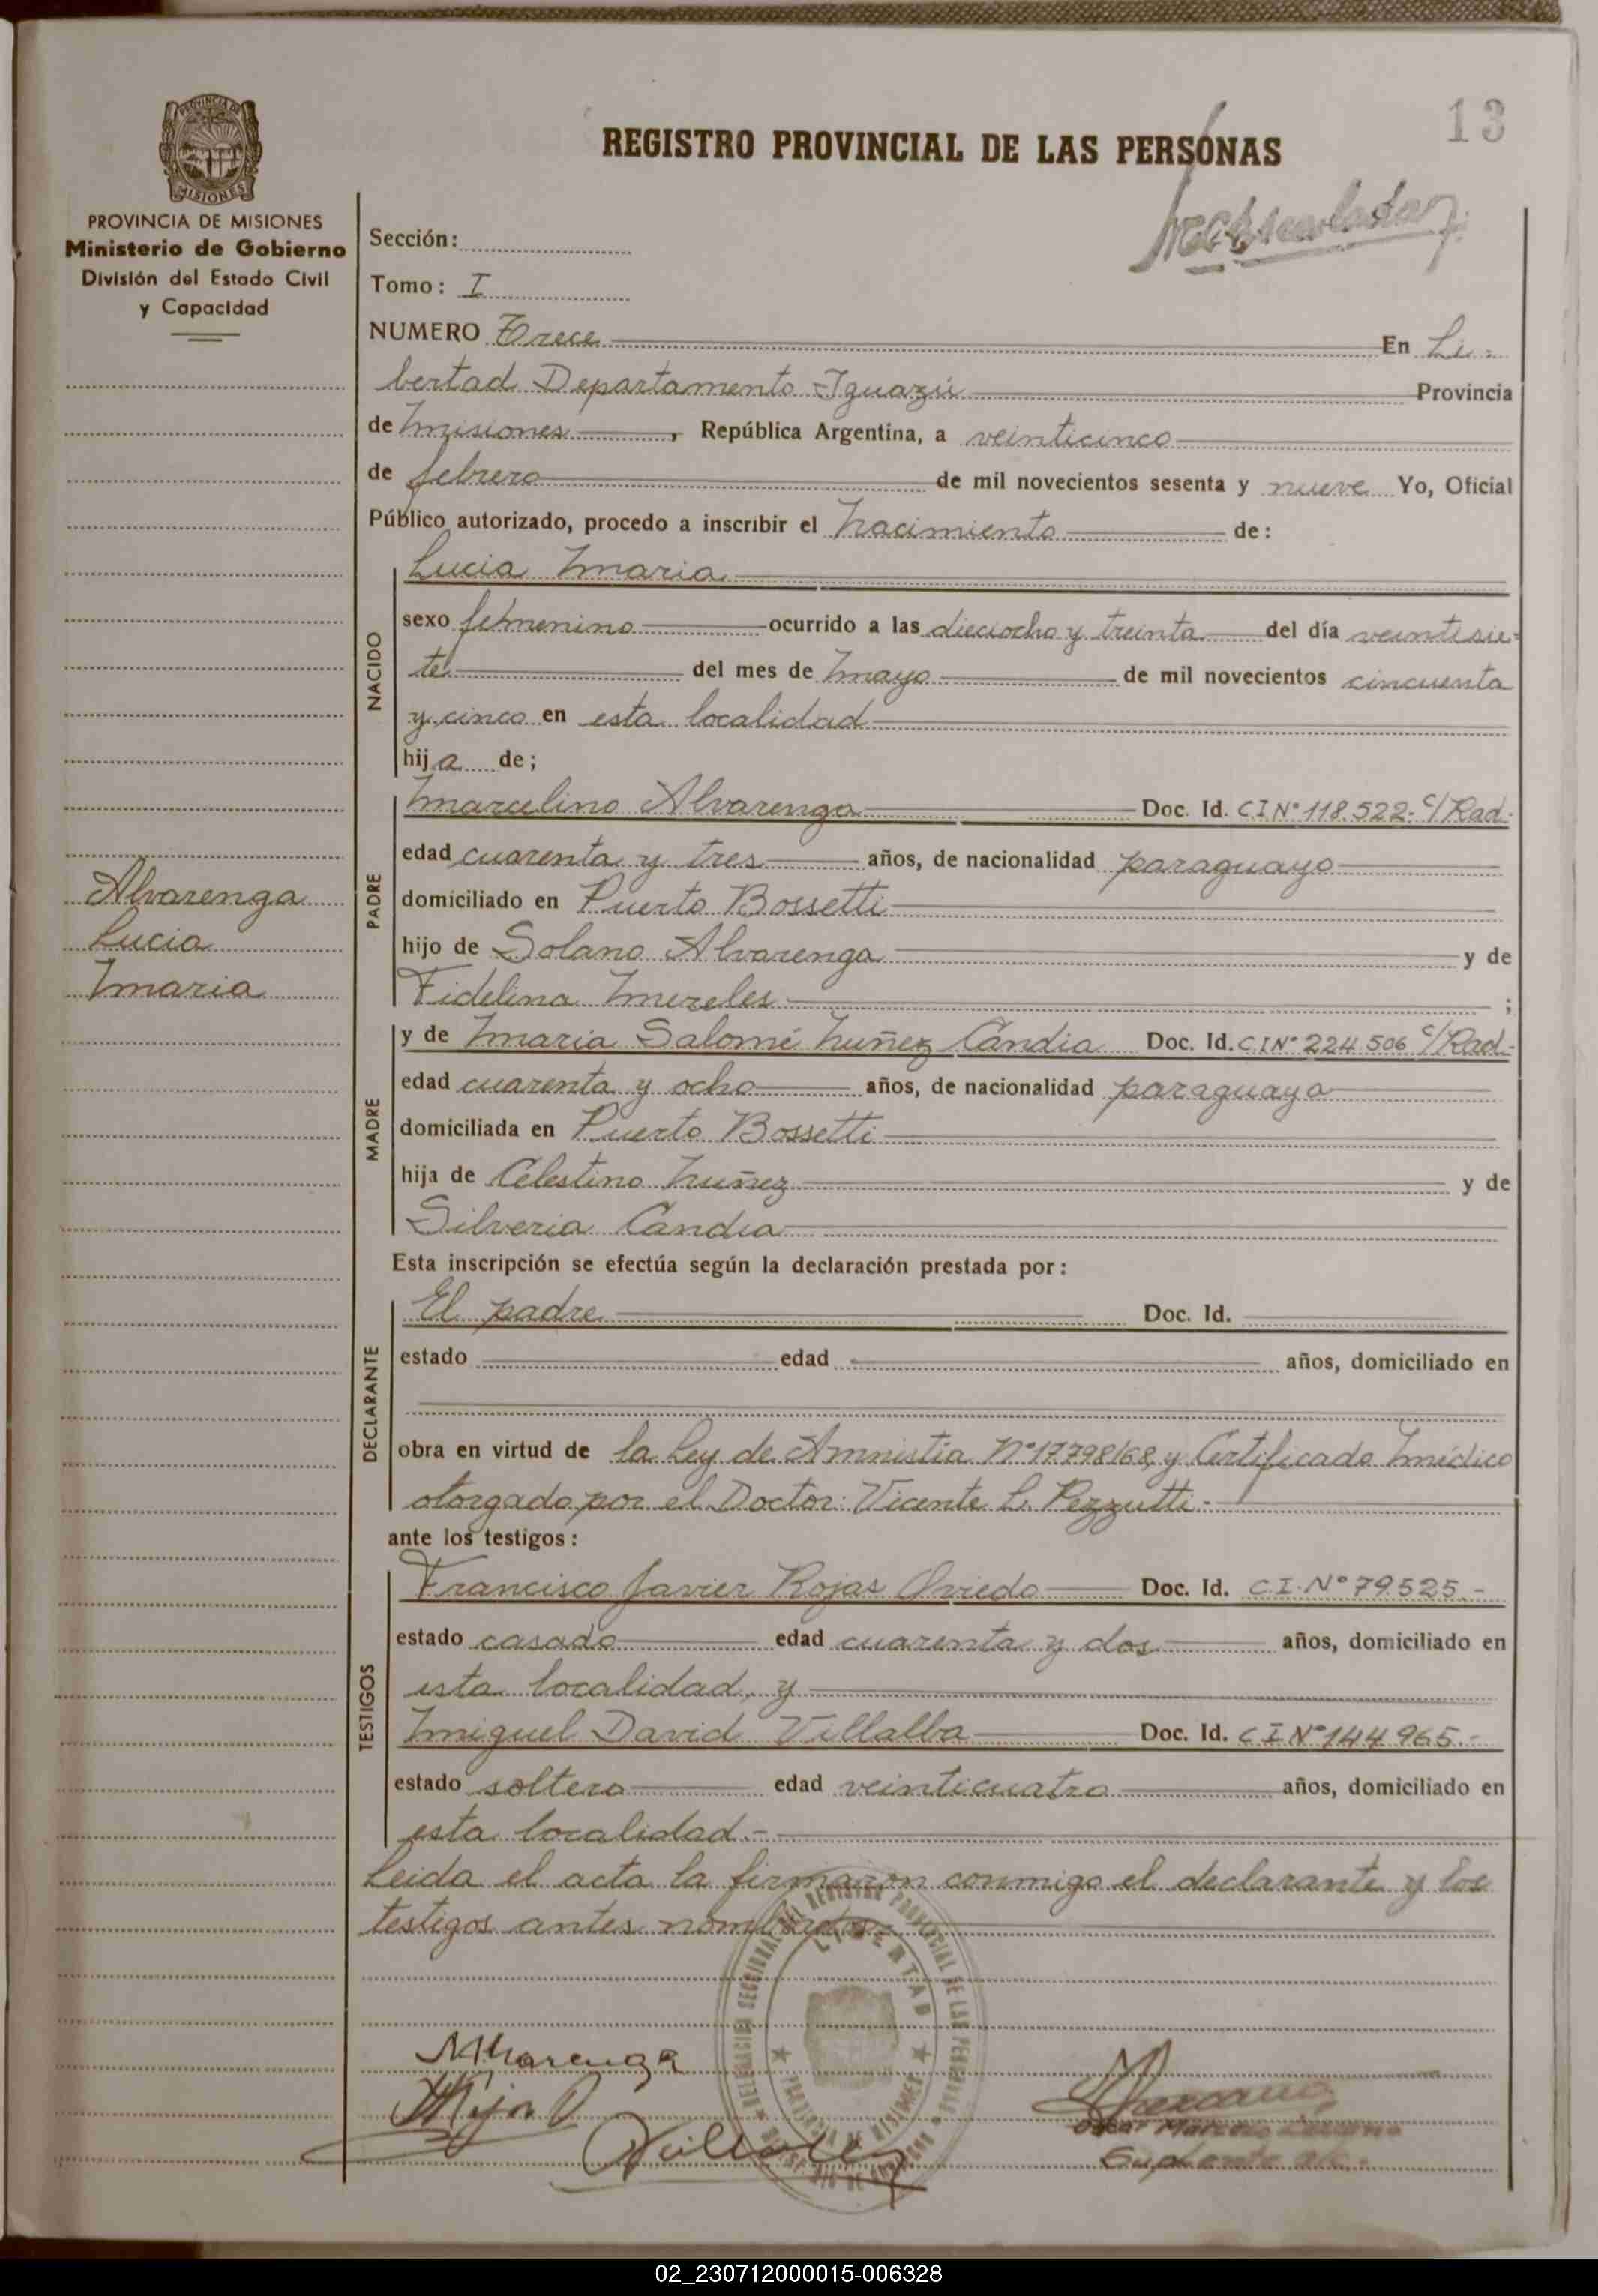 13
REGISTRO PROVINCIAL DE LAS PERSONAS
PROVINCIA DE MISIONES
Ministerio de Gobierno
División del Estado Civil
y Capacidad
Sección:
Tomo: I
NUMERO Trece En Li-
bertad Departamento Iguazú Provincia
de Misiones, República Argentina, a veinticinco
de febrero de mil novecientos sesenta y nueve Yo, Oficial
Público autorizado, procedo a inscribir el Nacimiento de:
Lucia Maria
NACIDO
sexo femenino ocurrido a las dieciocho y treinta del día veintisie-
te del mes de Mayo de mil novecientos cincuenta
y cinco en esta localidad
hija de;
PADRE
Marcelino Alvarenga Doc. Id. CI Nº 118.522- c/Rad.
edad cuarenta y tres años, de nacionalidad paraguayo
domiciliado en Puerto Bossetti
hijo de Solano Alvarenga y de
Fidelina Mereles ;
Alvarenga
Lucia
Maria
MADRE
y de Maria Salomé Nuñez Candia Doc. Id. C.I Nº 224.506 c/Rad.-
edad cuarenta y ocho años, de nacionalidad paraguaya
domiciliada en Puerto Bossetti
hija de Celestino Nuñez y de
Silveria Candia
Esta inscripción se efectúa según la declaración prestada por:
DECLARANTE
El padre Doc. Id.
estado edad años, domiciliado en
obra en virtud de la Ley de Amnistia Nº 17798/68, y Certificado Médico
otorgado por el Doctor: Vicente L. Pezzutti.-
ante los testigos:
TESTIGOS
Francisco Javier Rojas Oviedo Doc. Id. C.I. Nº 79.525.-
estado casado edad cuarenta y dos años, domiciliado en
esta localidad, y
Miguel David Villalba Doc. Id. C I Nº 144.965.-
estado soltero edad veinticuatro años, domiciliado en
esta localidad.-
Leida el acta la firmaron conmigo el declarante y los
testigos antes nombrados.-
MAlvarenga
LIBERTAD
PROVINCIA DE MISIONES
Suplente
02_230712000015-006328